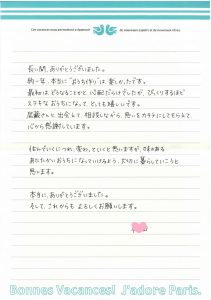 長い間、ありがとうございました。
約一年、本当に"おうち作り"は、楽しかったです。
最初は、どうなることかと、心配だらけでしたが、びっくりするほど
ステキなおうちになって、とっても嬉しいです。
尾藏さんと、出会えて、相談しながら、思いをカタチにしてもらえて、
心から感謝しています。
住んでいくにつれ、変わっていくと思いますが、味のある
あたたかいおうちになっていけるよう、大切に暮らしていこうと
思います。
本当に、ありがとうございました。
そして、これからも よろしくお願いします。
Bonnes Vacances! J'adore Paris.